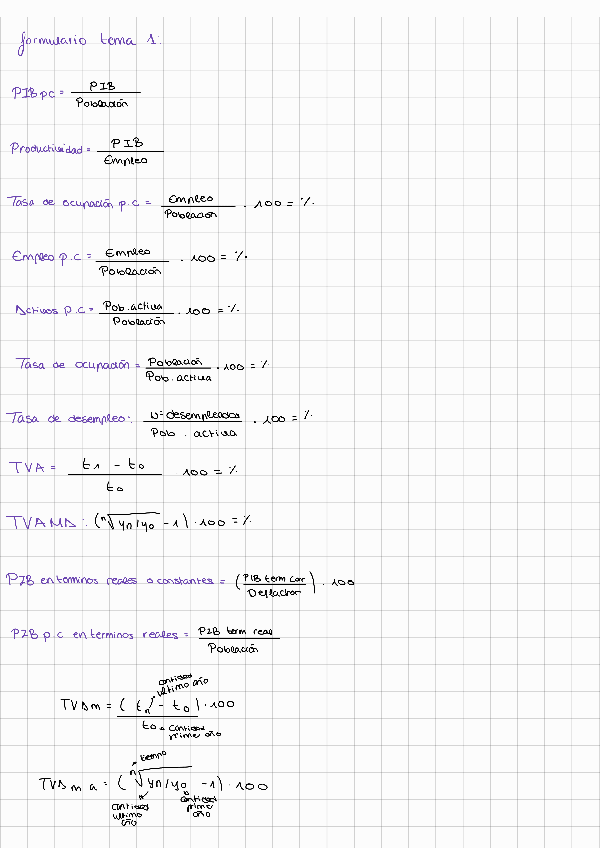 formulario tema 1:
PIB pc = PIB / Población
Productividad = PIB / Empleo
Tasa de ocupación p.c = Empleo / Población . 100 = %
Empleo p.c = Empleo / Población . 100 = %
Activos p.c = Pob. activa / Población . 100 = %
Tasa de ocupación = Población / Pob. activa . 100 = %
Tasa de desempleo: U=desempleados / Pob. activa . 100 = %
TVA = t1 - t0 / t0 100 = %
TVAMA: (ⁿ√yn/y0 - 1) . 100 = %
PIB en terminos reales o constantes = (PIB term cor / Deflactor) . 100
PIB p.c en terminos reales = PIB term real / Población
cantidad ultimo año
TVAm = (tn - t0) . 100 / t0
cantidad prime año
tiempo
TVAm a = (ⁿ√yn/y0 - 1) . 100
cantidad ultimo año
cantidad prime año